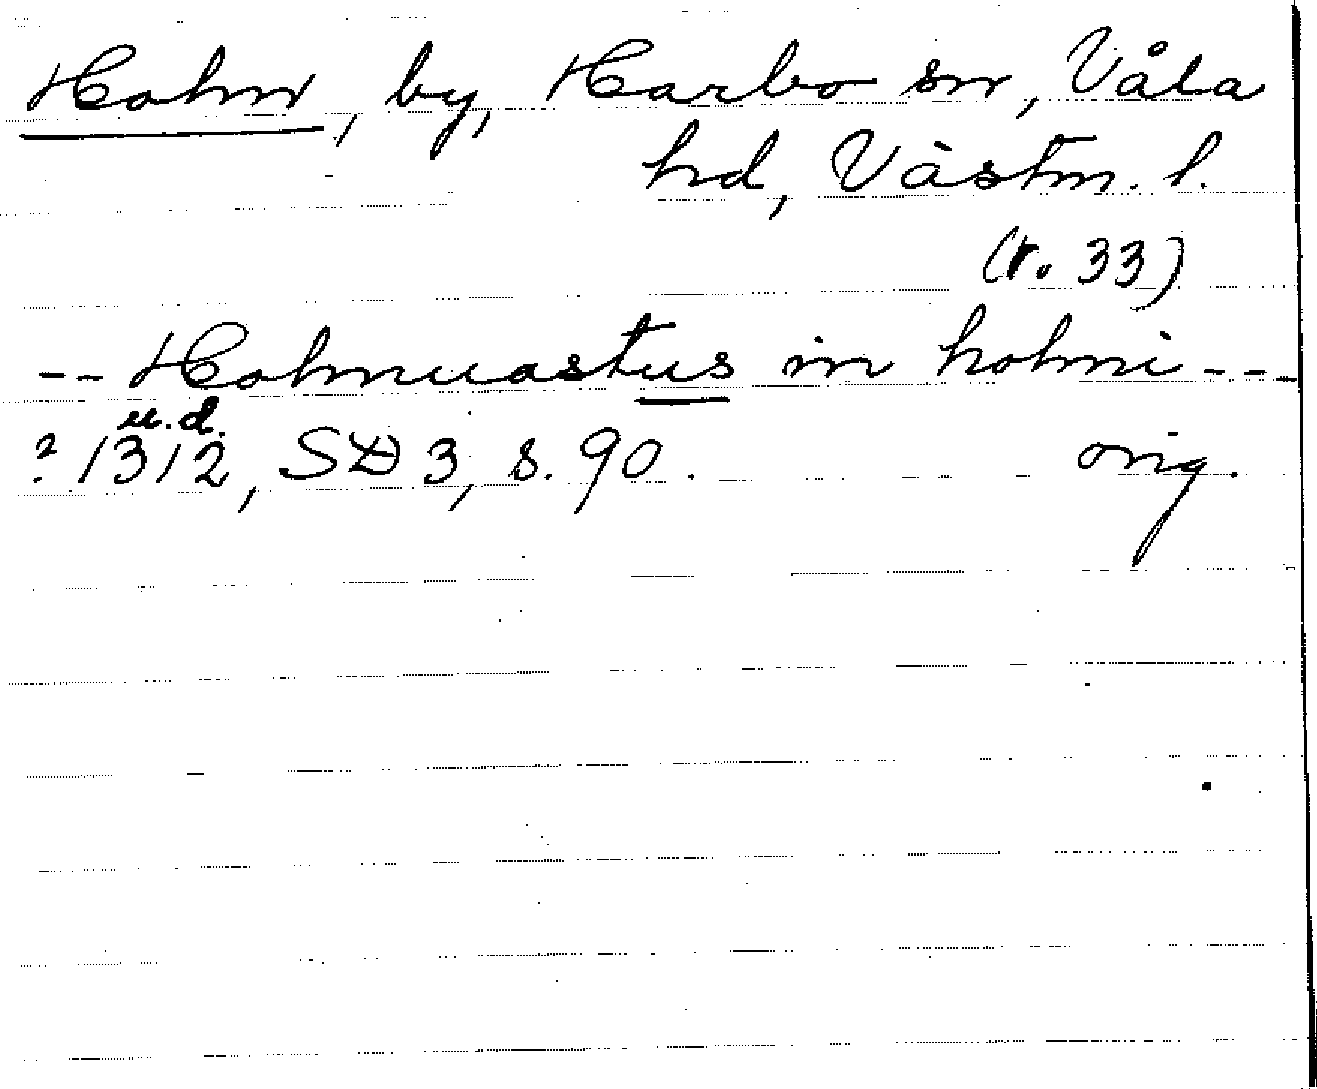 Holm, by, Harbo sn, Våla
hd, Västm. l.
(t. 33)
-- Holmuastus in holmi ---
u.d.
? 1312, SD 3, s. 90. orig.